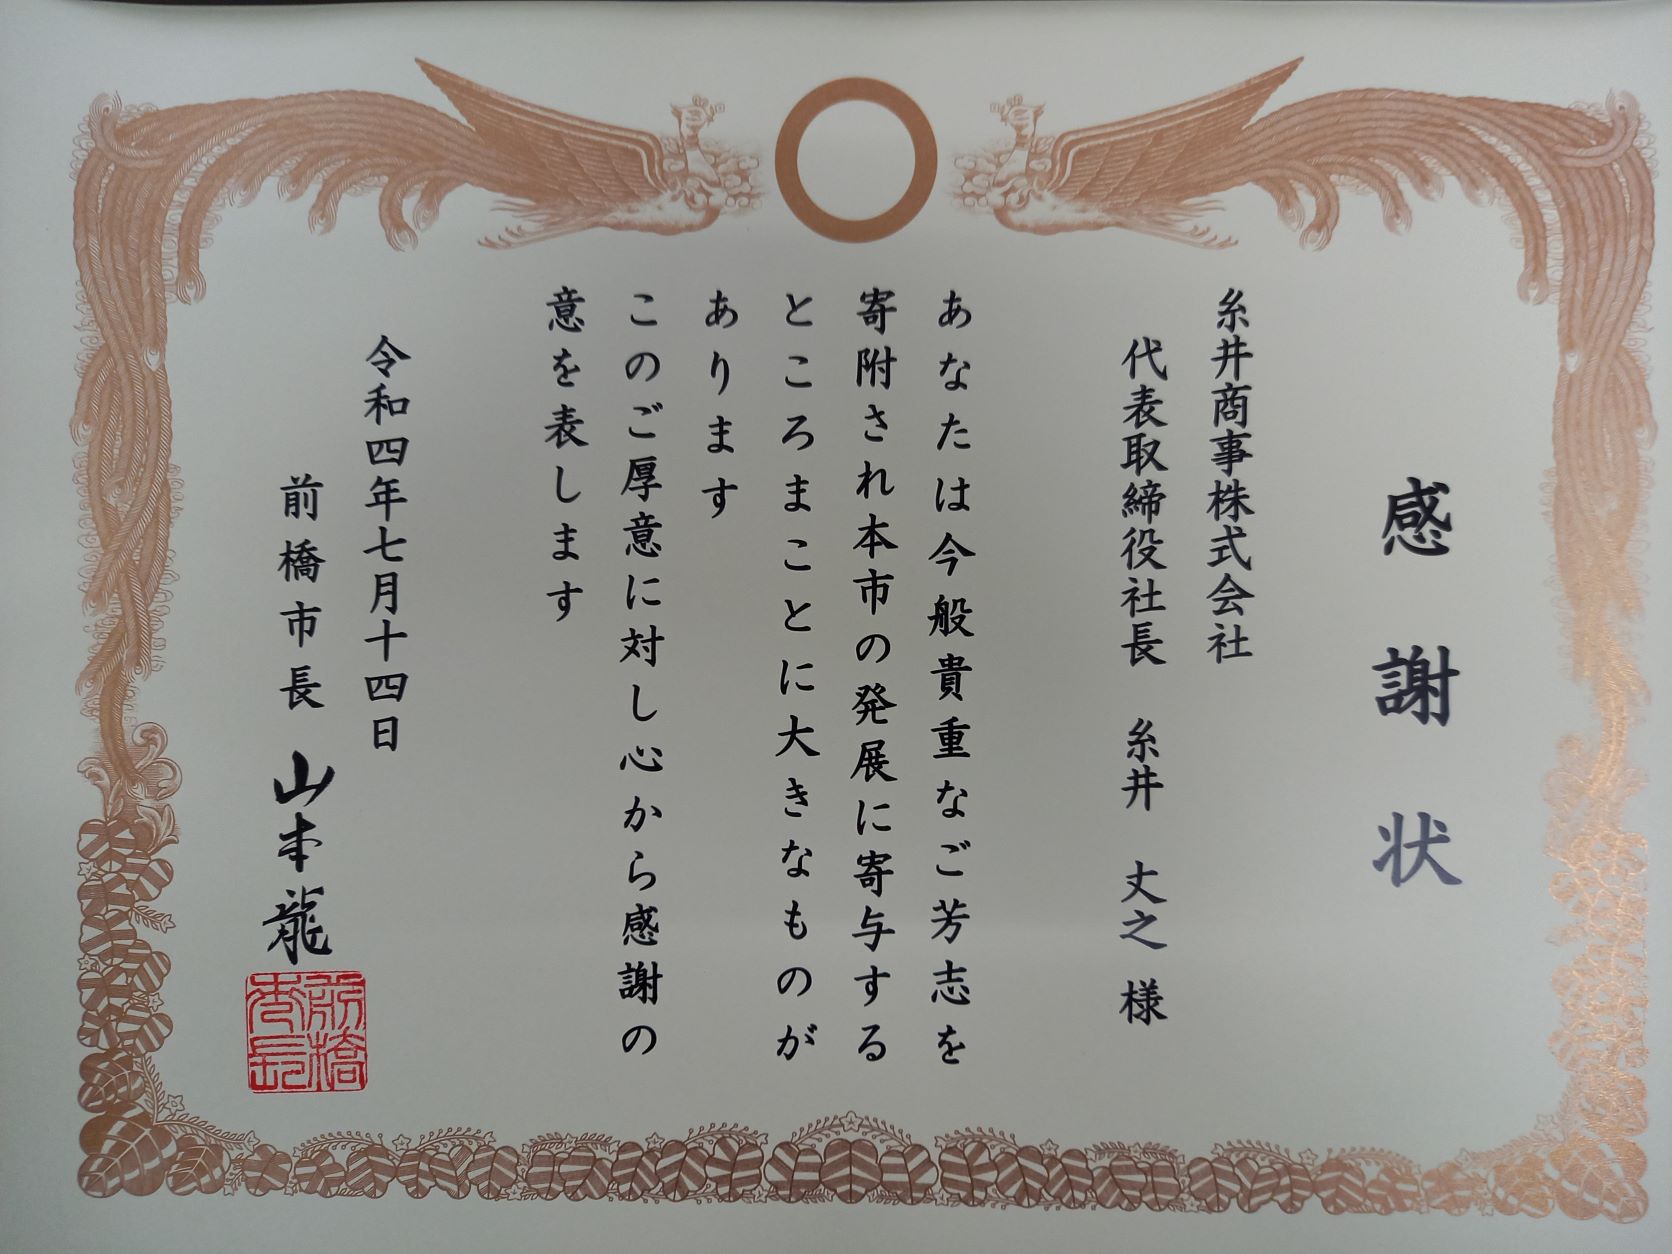 感謝状
糸井商事株式会社
代表取締役社長 糸井 丈之 様
あなたは今般貴重なご芳志を
寄附され本市の発展に寄与する
ところまことに大きなものが
あります
このご厚意に対し心から感謝の
意を表します
令和四年七月十四日
前橋市長 山本龍
前橋
市長